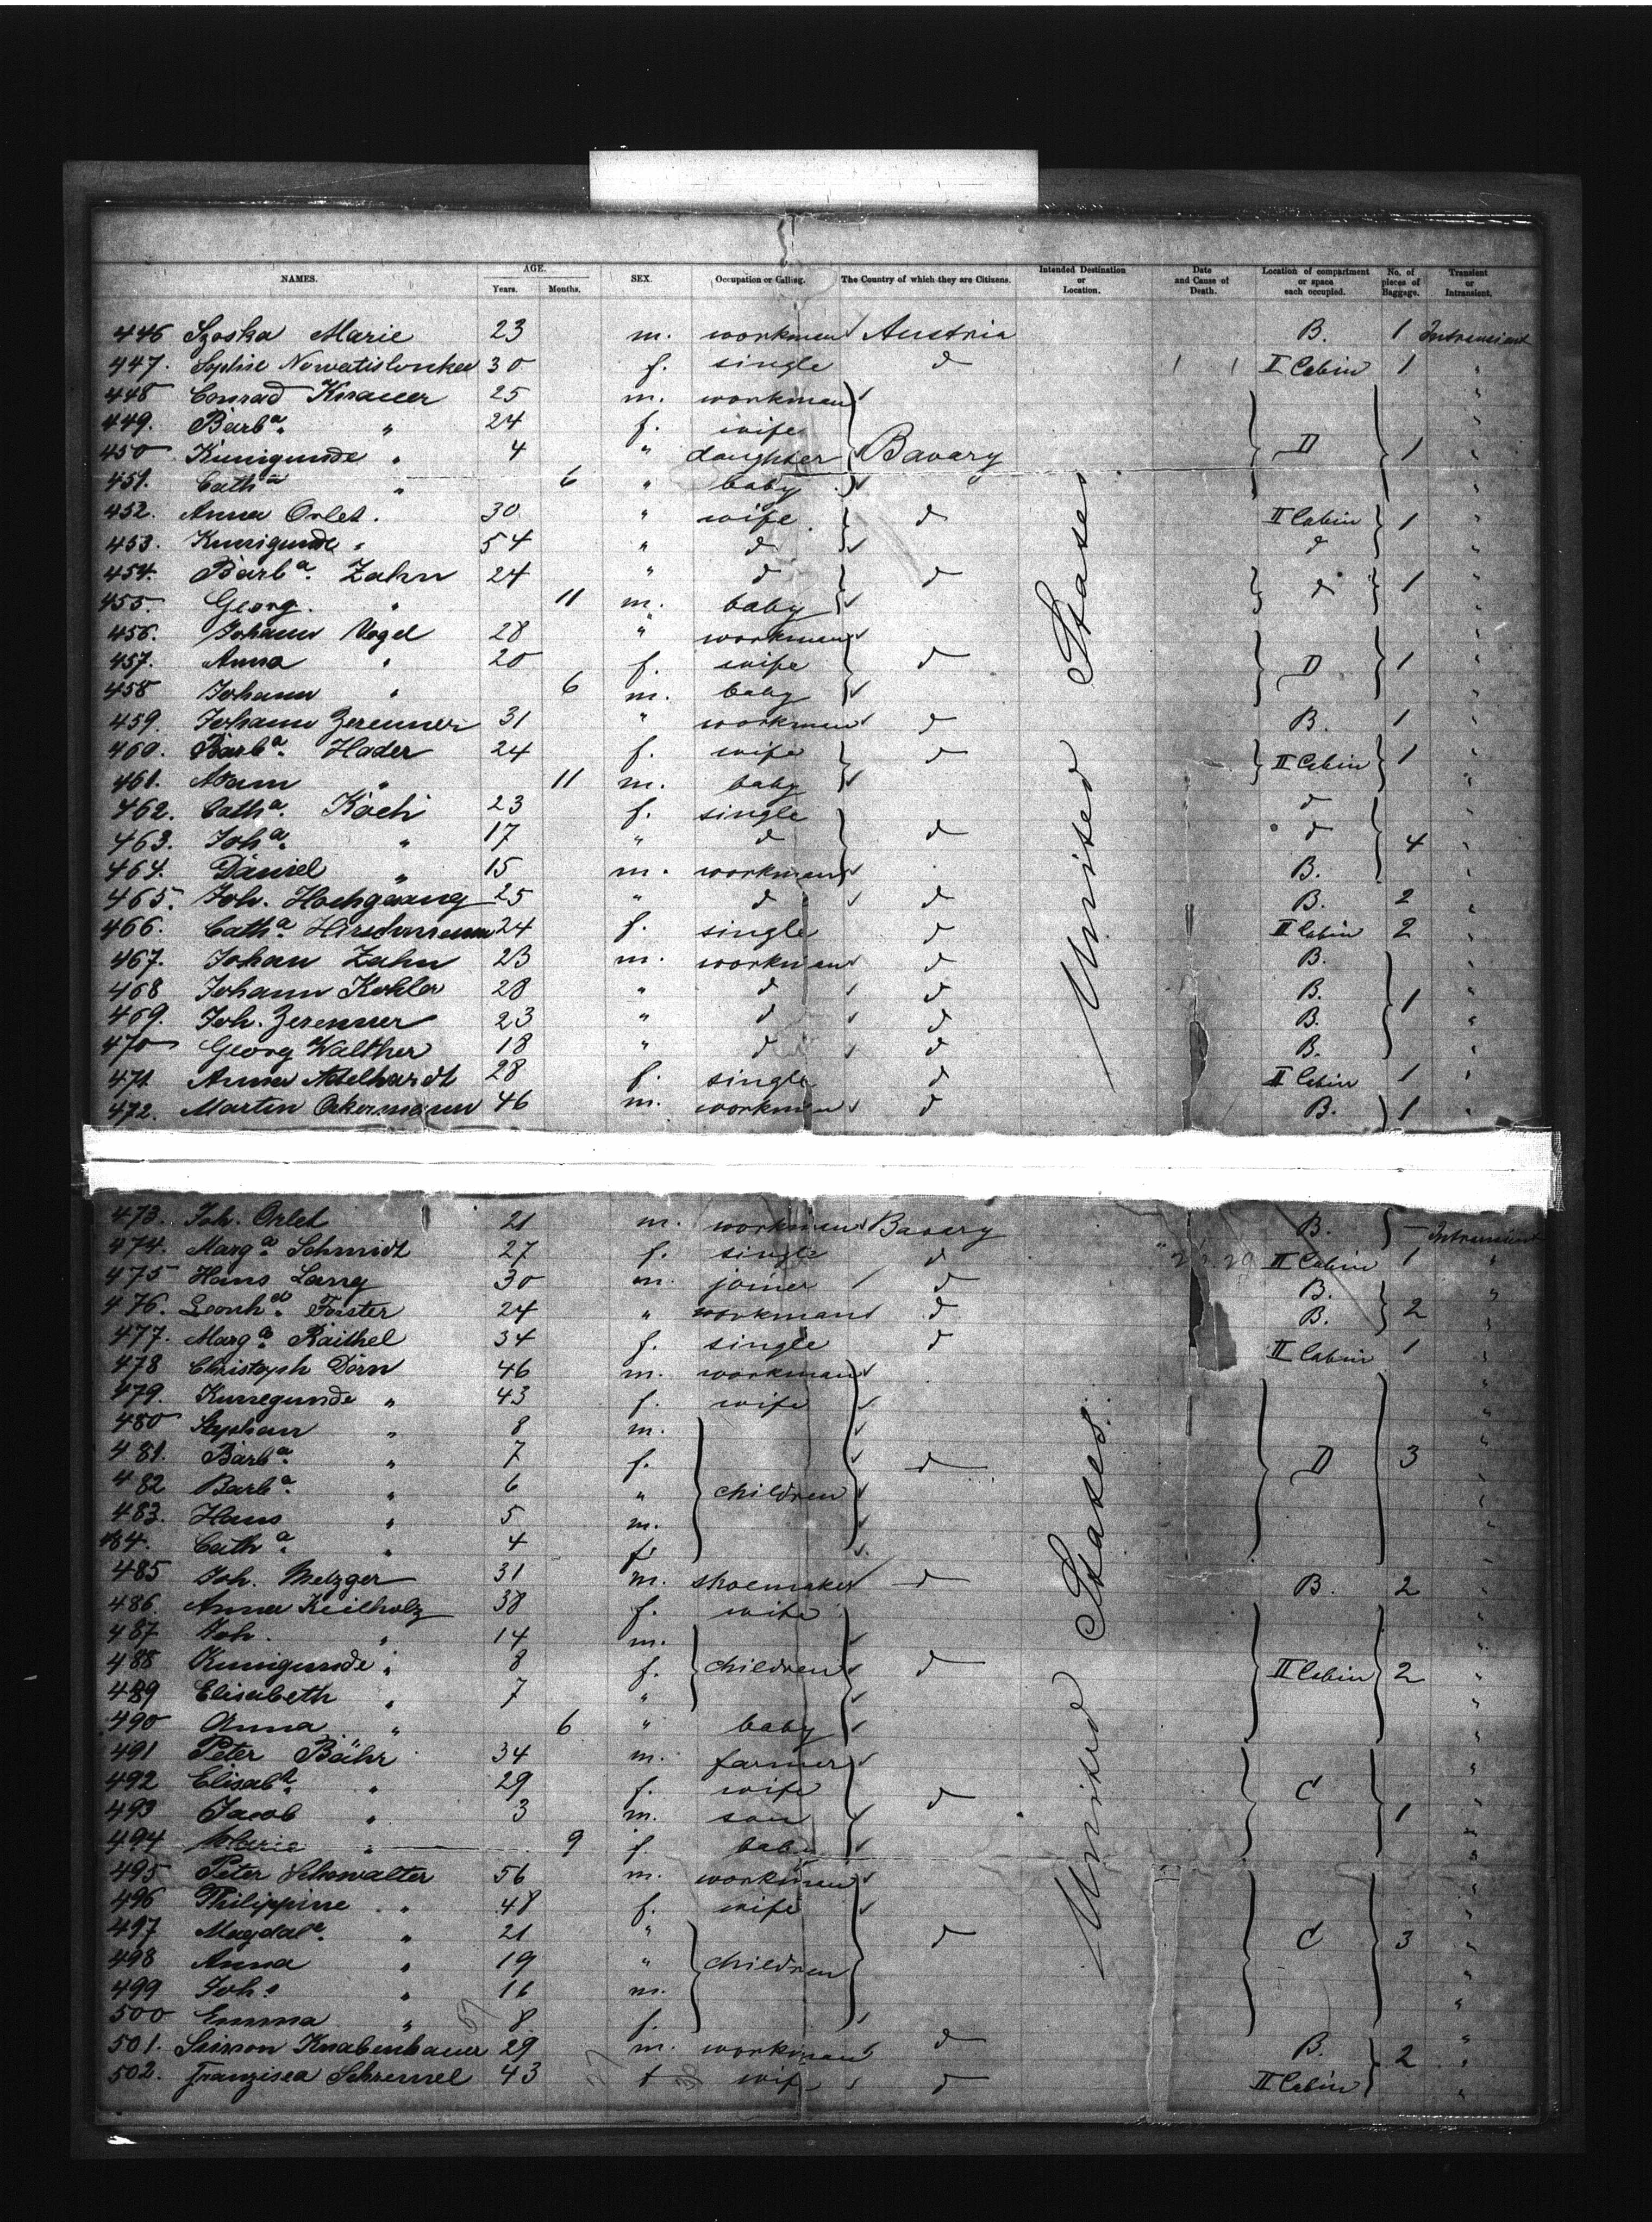 NAMES. AGE. Years. Months. SEX. Occupation or Calling. The Country of which they are Citizens. Intended Destination or Location. Date and Cause of Death. Location of compartment or space each occupied. No. of pieces of Baggage. Transient or Intransient.
446 Szoska Marie 23 m. workman Austria B. 1 Intransient
447. Sophie 30 f. single d I Cabin 1 "
448 Conrad Knauer 25 m. workman "
449. Barba. " 24 f. wife "
450 Kunigunde " 4 " daughter Bavary D 1 "
451. Catha " 6 " baby "
452. Anna Orlet. 30 " wife d II Cabin 1 "
453. Kunigunde " 54 " d d "
454. Barba. Zahn 24 " d d d 1 "
455. Georg. " 11 m. baby "
456. Johann Vogel 28 " workman "
457. Anna " 20 f. wife d D 1 "
458 Johann " 6 m. baby "
459. Johann Zerenner 31 " workman d B. 1 "
460. Barba. Hader 24 f. wife d II Cabin 1 "
461. Adam " 11 m. baby "
462. Catha. Koch 23 f. single d "
463. Joha. " 17 " d d d 4 "
464. Daniel " 15 m. workman B. "
465. Joh. Hochgesang 25 " d d B. 2 "
466. Catha. Hirschmann 24 f. single d II Cabin 2 "
467. Johan Zahn 23 m. workman d B. "
468 Johann Kohler 28 " d d B. 1 "
469. Joh. Zerenner 23 " d d B. "
470 Georg Walther 18 " d d B. "
471 Anna Adelhardt 28 f. single d II Cabin 1 "
472. Martin Ackermann 46 m. workman d B. 1 "
United States
473. Joh. Orlet 21 m. workman Bavary B. — Intransient
474. Marga. Schmidt 27 f. single d II Cabin 1 "
475 Hans Lang 30 m. joiner d B. "
476. Leonhd. Forster 24 " workman d B. 2 "
477. Marga. Raithel 34 f. single d II Cabin 1 "
478 Christoph Dorn 46 m. workman "
479. Kunegunde " 43 f. wife "
480 Stephan " 8 m. "
481. Barba. " 7 f. d D 3 "
482 Barba. " 6 " children "
483. Hans " 5 m. "
484. Catha. " 4 f.
485 Joh. Metzger 31 m. shoemaker d B. 2 "
486. Anna Keilholz 38 f. wife "
487 Joh. " 14 m. "
488 Kunigunde " 8 f. children d II Cabin 2 "
489 Elisabeth " 7 " "
490 Anna " 6 " baby "
491 Peter Bähr 34 m. farmer "
492 Elisabh. " 29 f. wife d C "
493 Jacob " 3 m. son 1 "
494 Marie " 9 f. baby "
495 Peter Schowalter 56 m. workman "
496 Philippine " 48 f. wife "
497 Magdale. " 21 " d C 3 "
498 Anna " 19 " children "
499 Joh. " 16 m. "
500 Emma " 8 f.
501. Simon Knabenbauer 29 m. workman d B. 2 "
502. Franzisca Schremel 43 f wife d II Cabin "
United States.